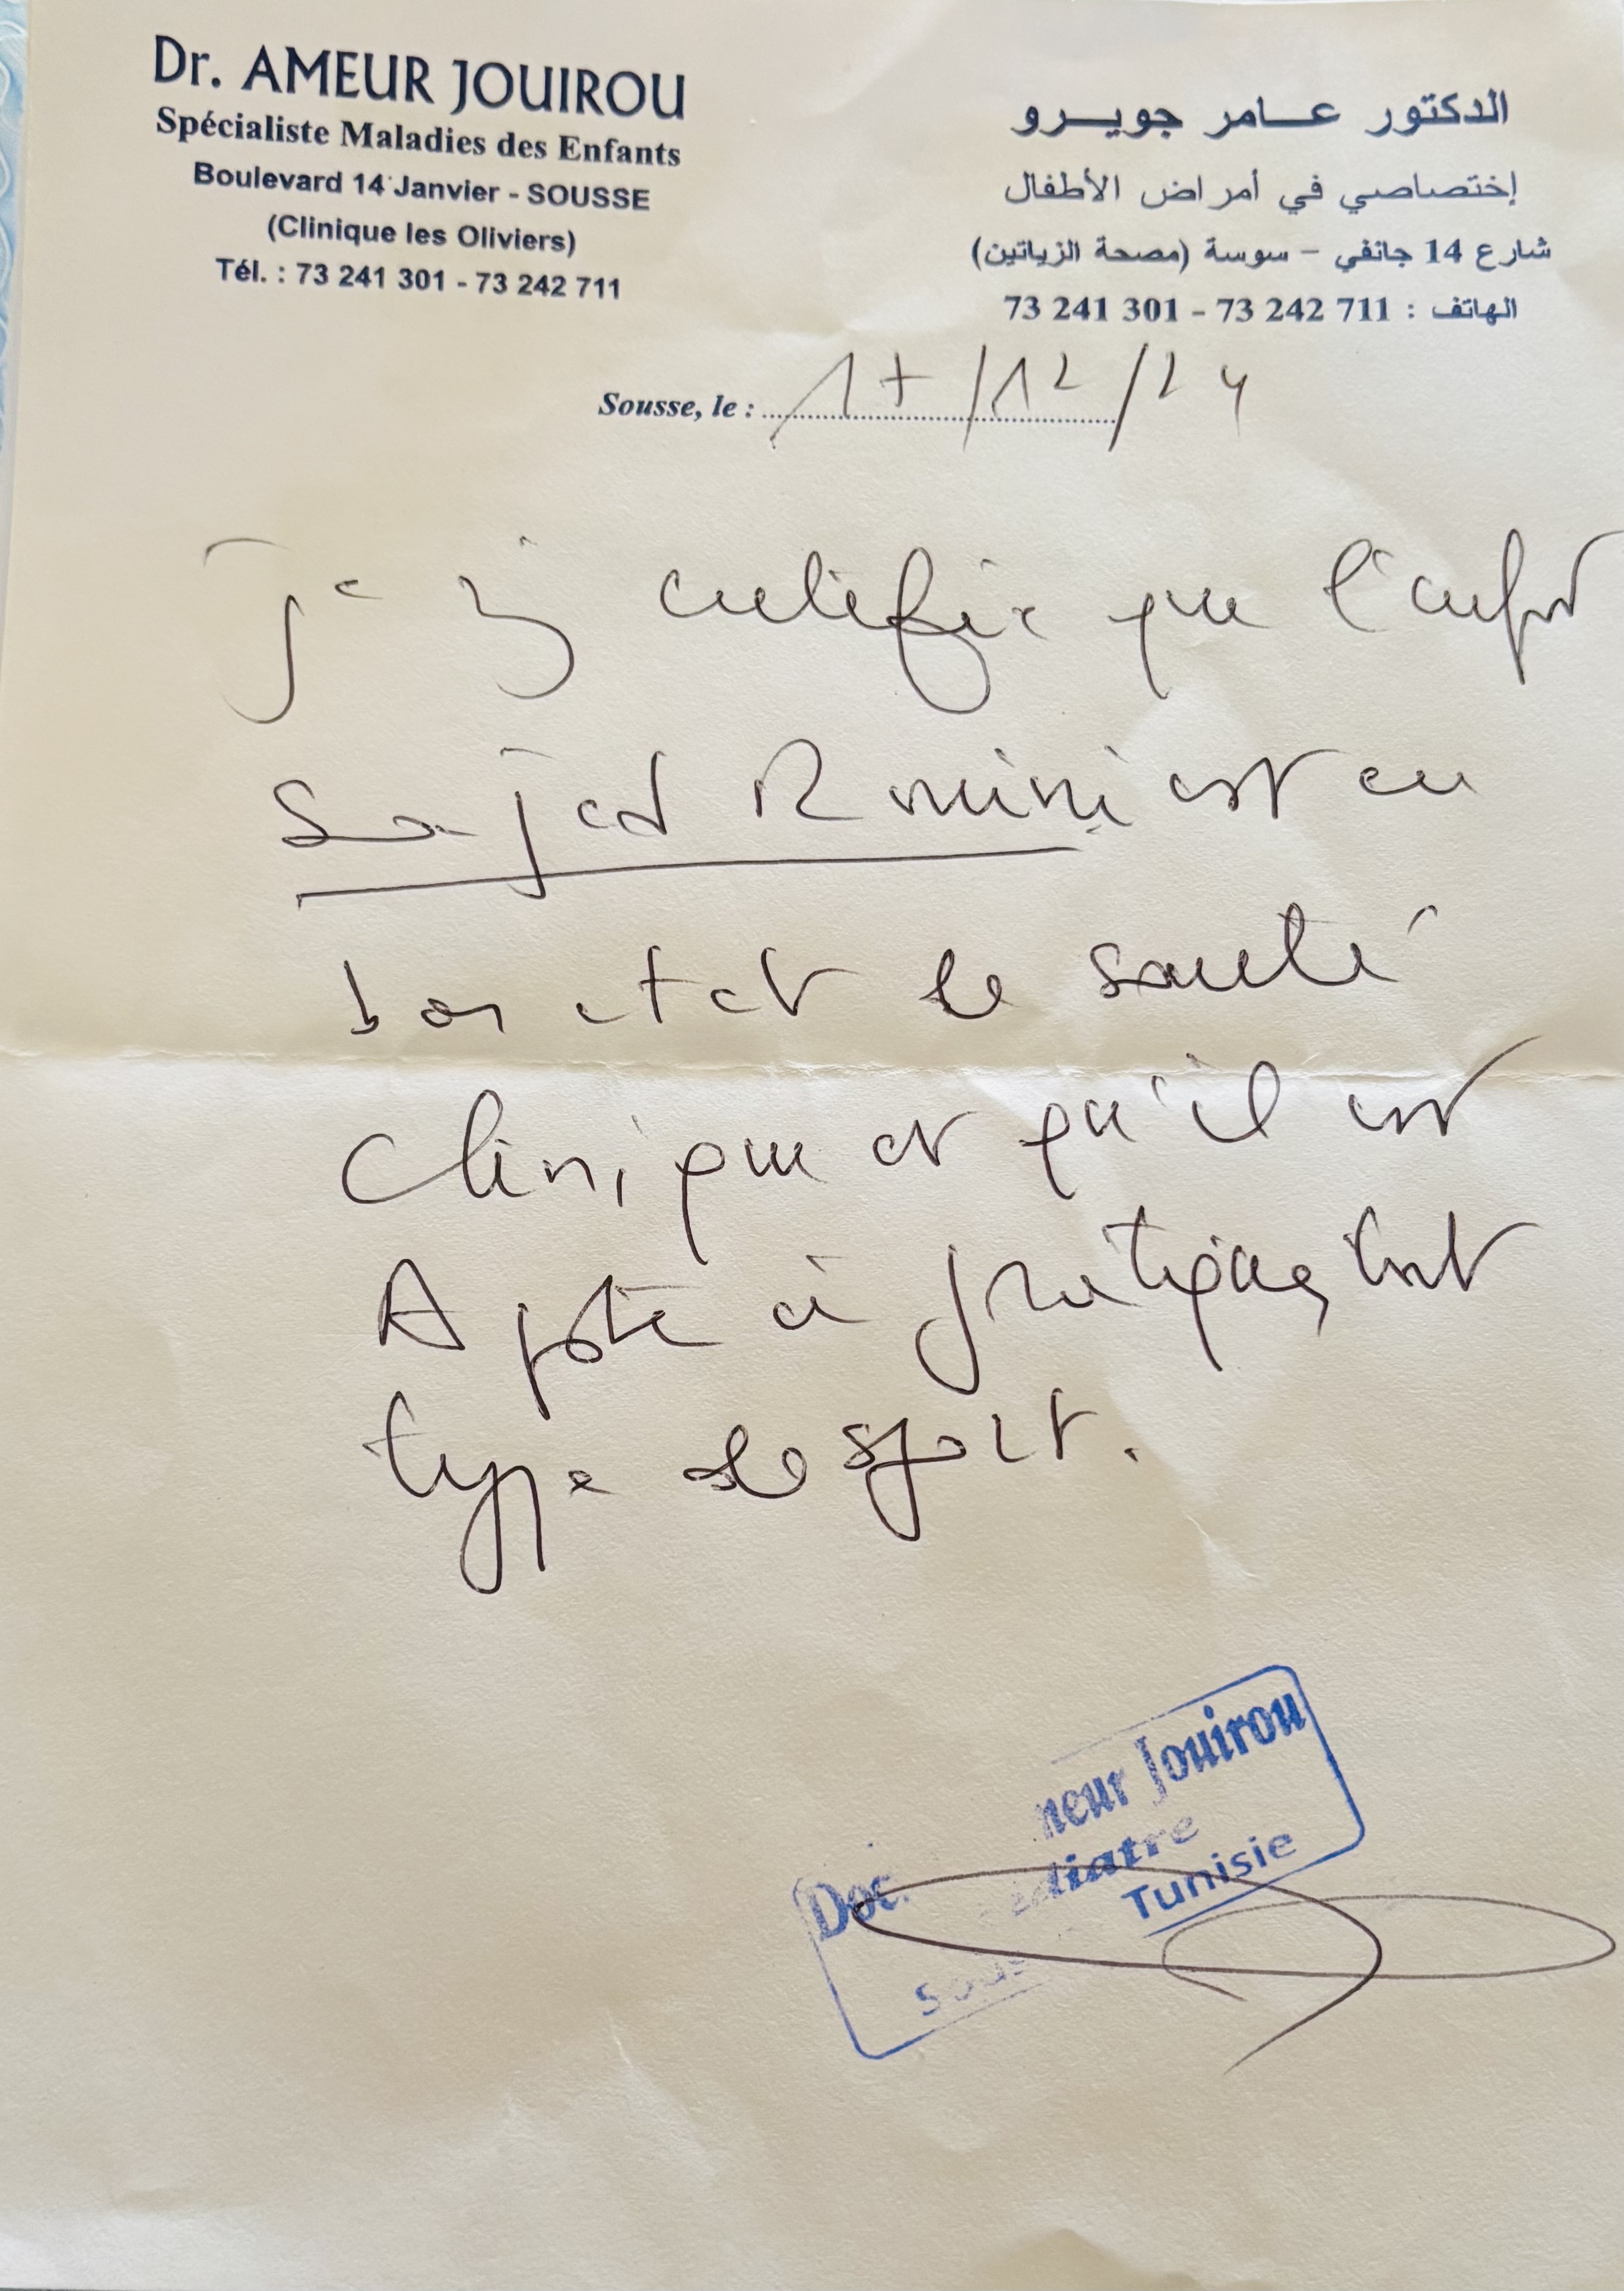 Dr. AMEUR JOUIROU
Spécialiste Maladies des Enfants
Boulevard 14 Janvier - SOUSSE
(Clinique les Oliviers)
Tél. : 73 241 301 - 73 242 711
الدكتور عـــامر جويـــرو
إختصاصي في أمراض الأطفال
شارع 14 جانفي - سوسة (مصحة الزياتين)
الهاتف : 711 242 73 - 301 241 73
Sousse, le : 17/12/24
certifie que l'enfant
Sajed est en
bon etat de santé
Clinique et qu'il est
Apte à pratiquer tout
type de sport.
Doc. neur Jouirou
diatre
Sous Tunisie